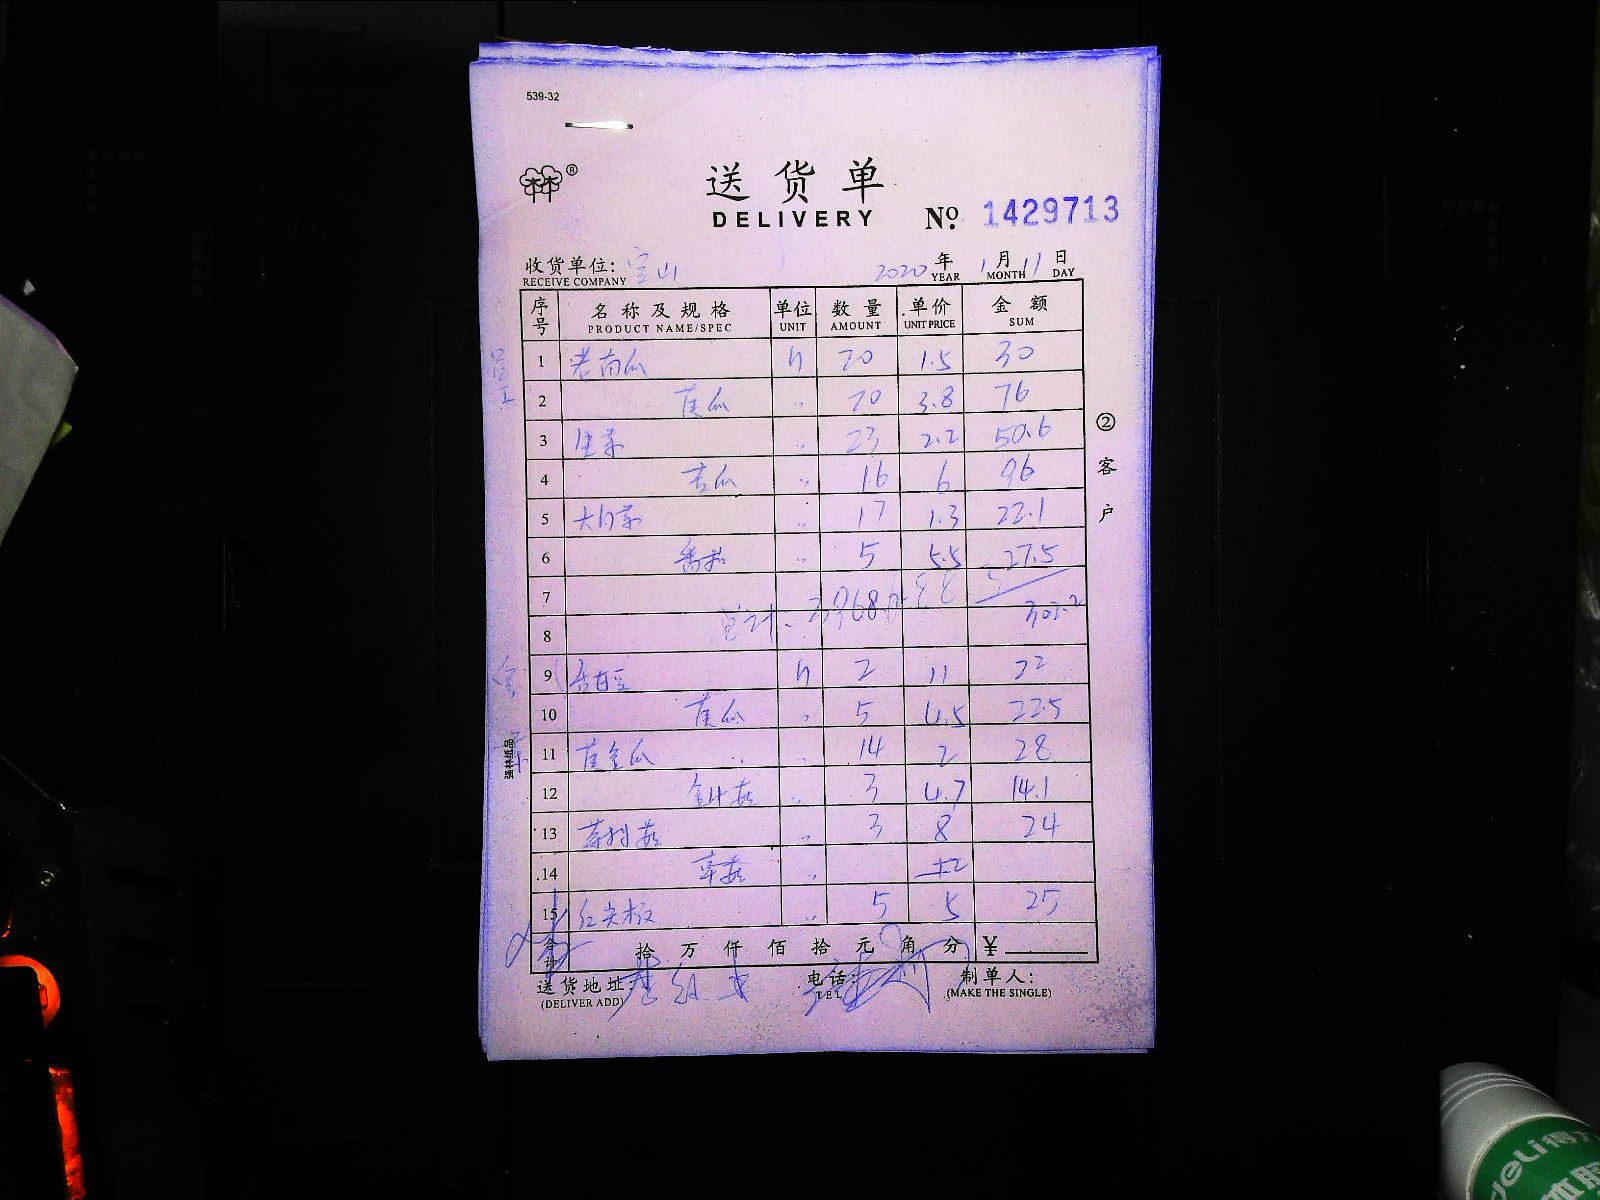 539-32
®
送货单
DELIVERY
№. 1429713
收货单位: 宝山 2020 年 1 月 11 日
RECEIVE COMPANY YEAR MONTH DAY
序号 名称及规格 单位 数量 单价 金额
PRODUCT NAME/SPEC UNIT AMOUNT UNIT PRICE SUM
1 老南瓜 20 1.5 30
2 黄瓜 " 20 3.8 76
3 生菜 " 23 2.2 50.6
4 苦瓜 " 16 6 96
5 大白菜 " 17 1.3 22.1
6 番茄 " 5 5.5 27.5
7
8 302.2
9 2 11 22
10 黄瓜 " 5 4.5 22.5
11 黄金瓜 " 14 2 28
12 金针菇 " 3 4.7 14.1
13 茶树菇 " 3 8 24
14 草菇 " 12
15 红尖椒 " 5 5 25
合计 拾 万 仟 佰 拾 元 角 分 ¥
送货地址: 电话: 制单人:
(DELIVER ADD) TEL (MAKE THE SINGLE)
②客户
强林纸品
deli得力